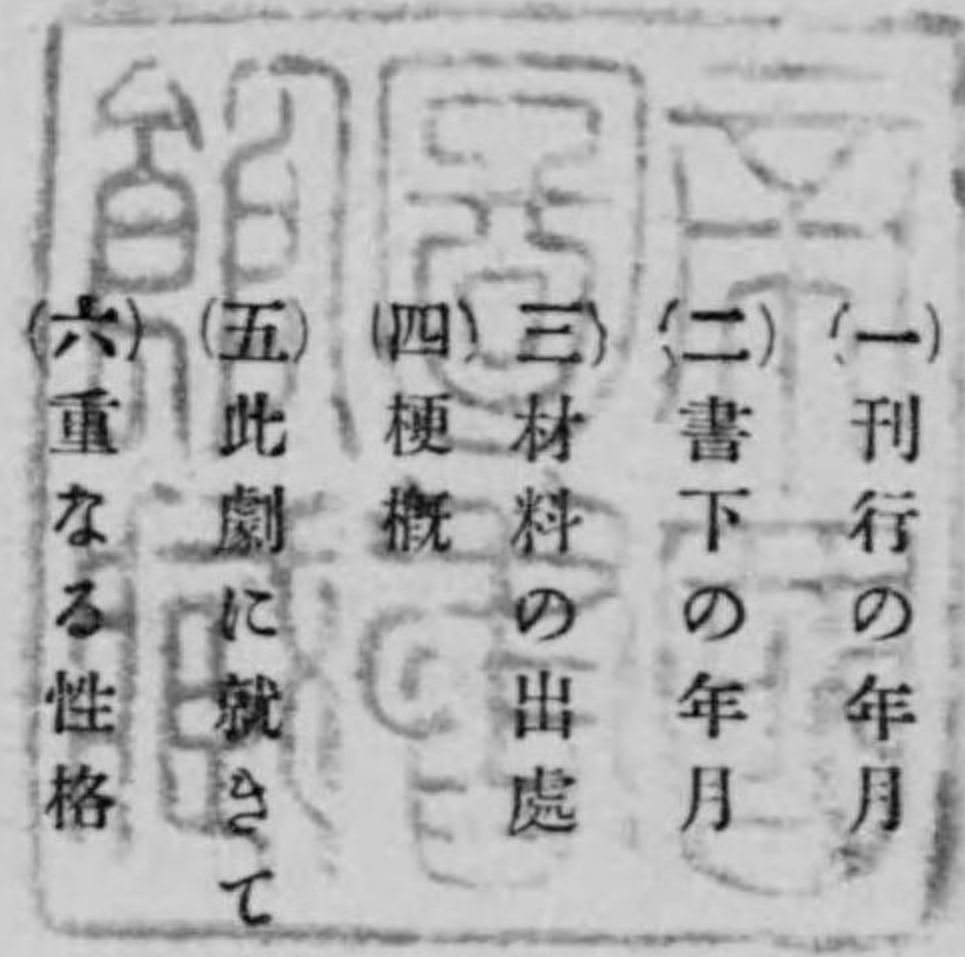 (一)刊行の年月
(二)書下の年月
(三)材料の出處
(四)梗概
(五)此劇に就きて
(六)重なる性格